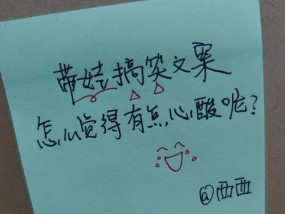 带娃搞笑文案
怎么觉得有点心酸呢？
@西西